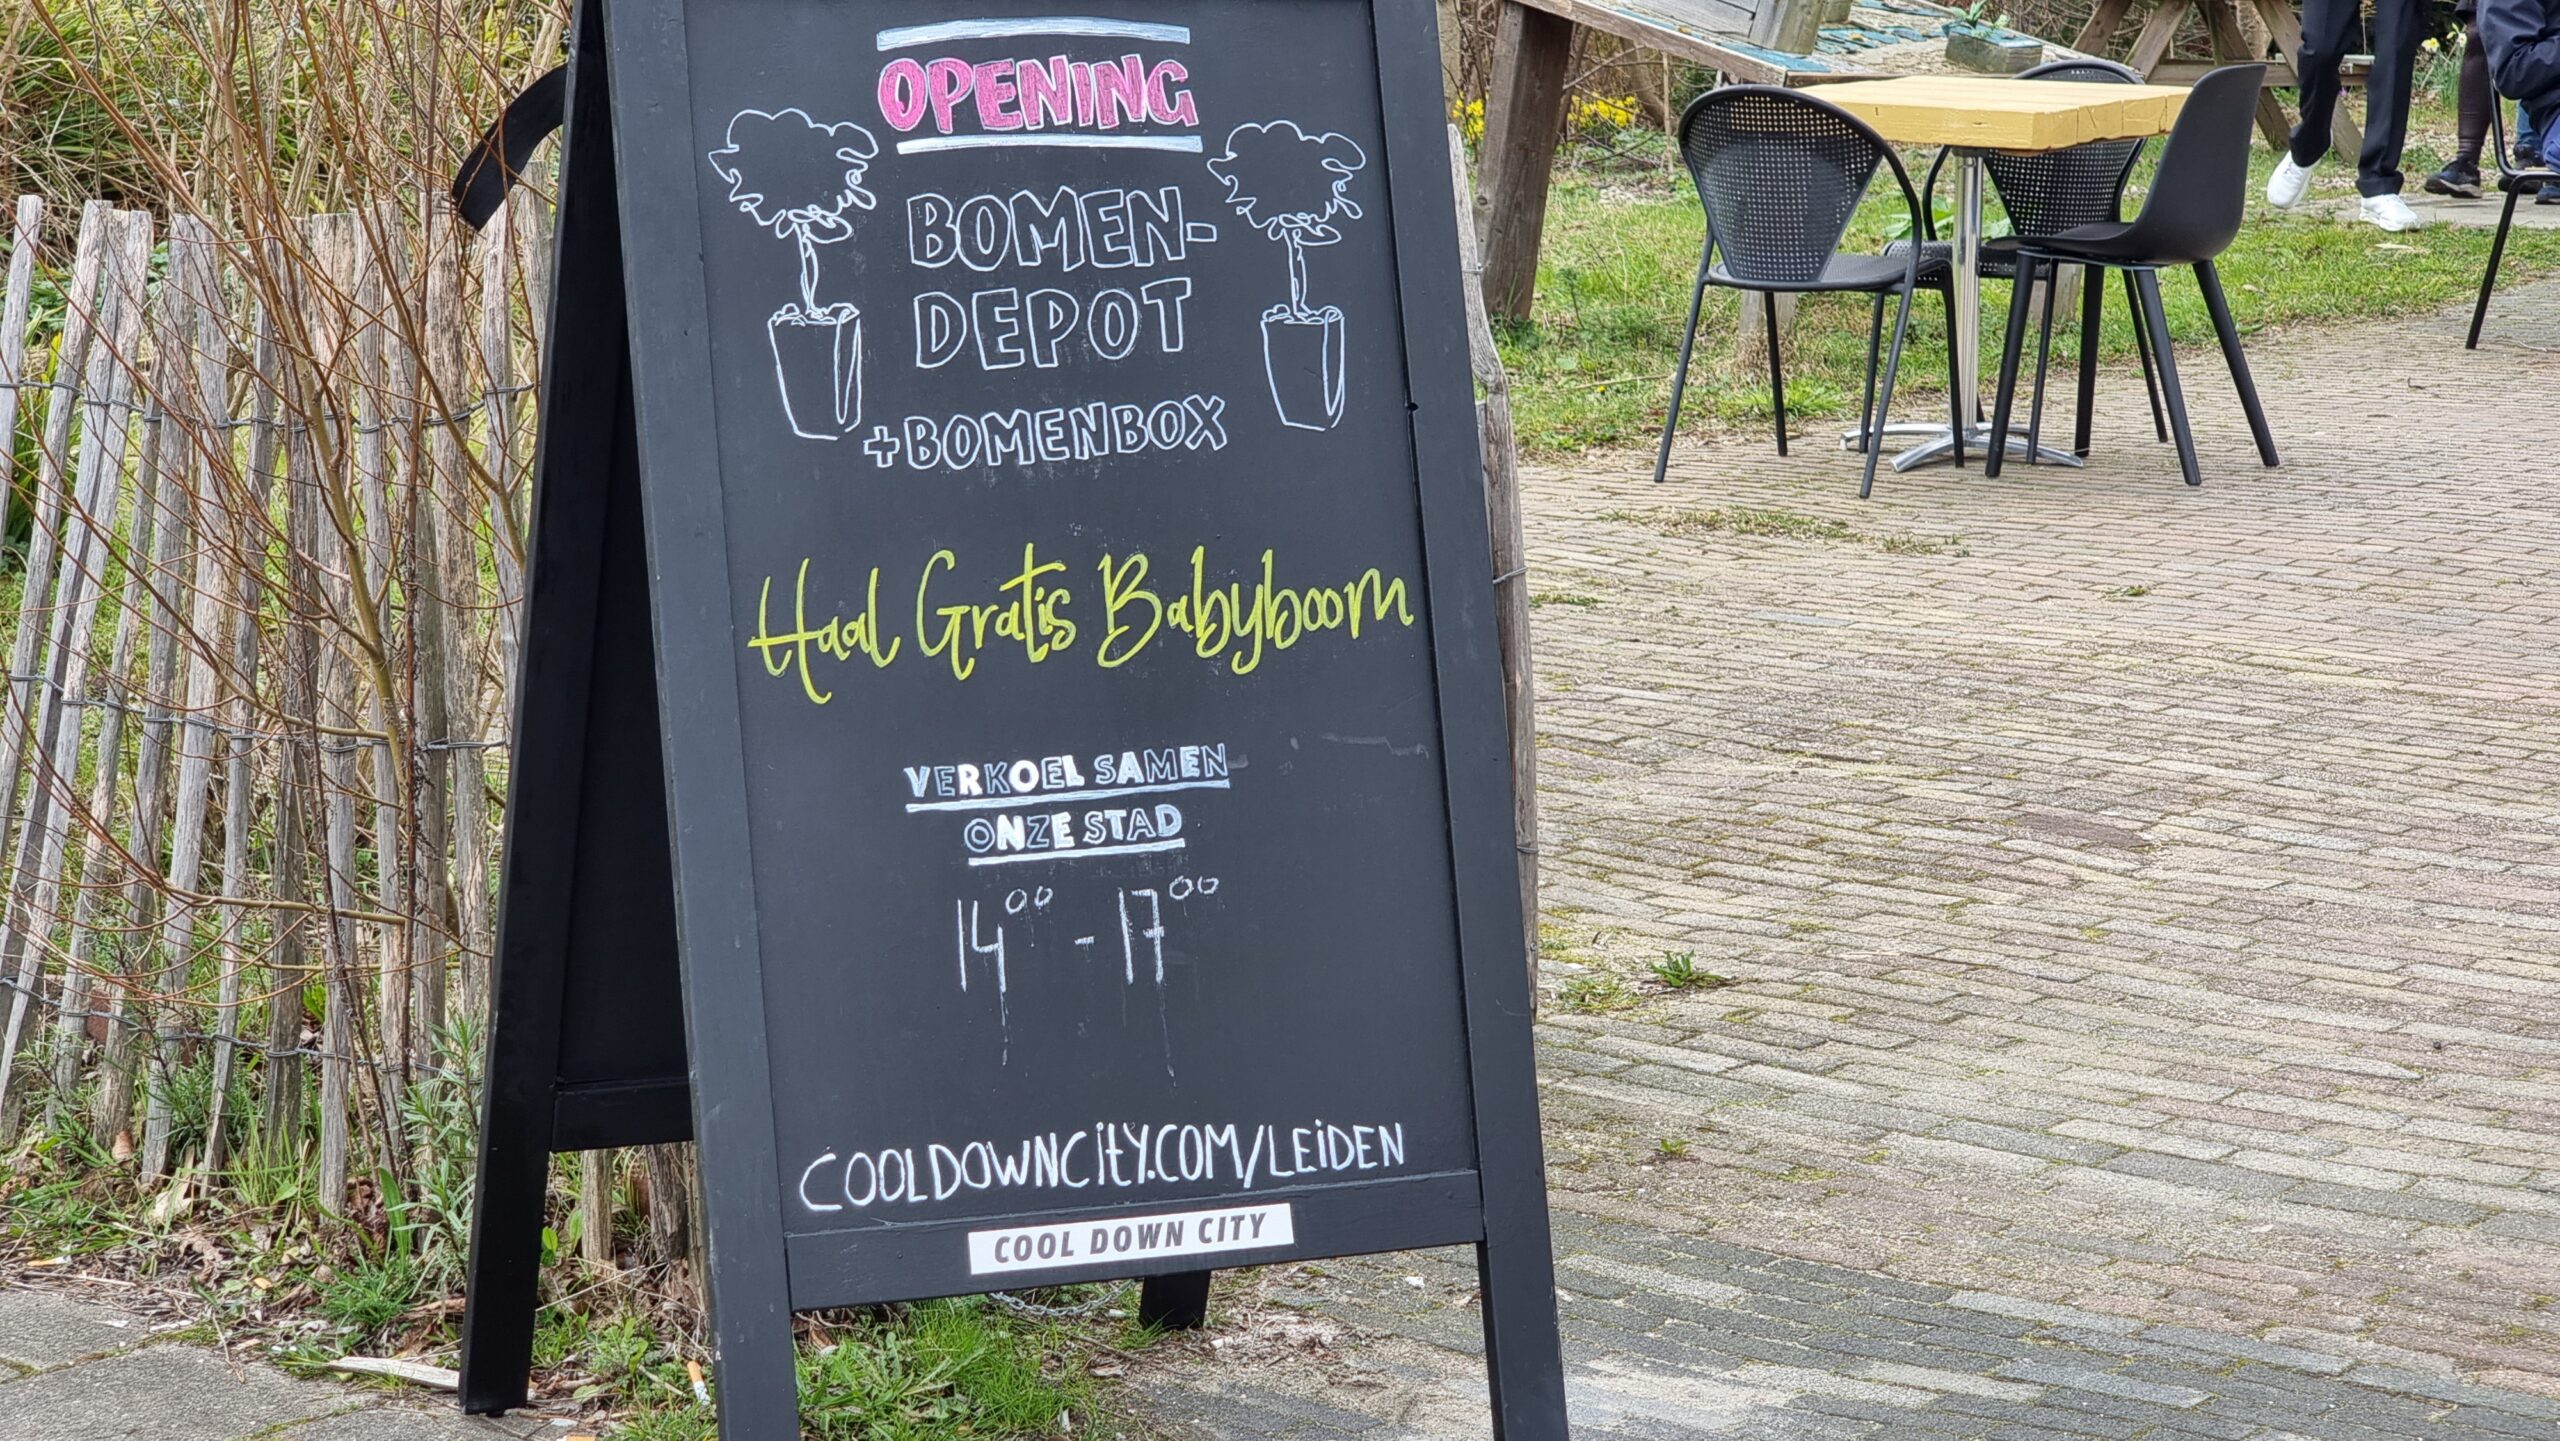 OPENING
BOMEN-
DEPOT
+BOMENBOX
Haal Gratis Babyboom
VERKOEL SAMEN
ONZE STAD
14⁰⁰ - 17⁰⁰
COOLDOWNCITY.COM/LEIDEN
COOL DOWN CITY